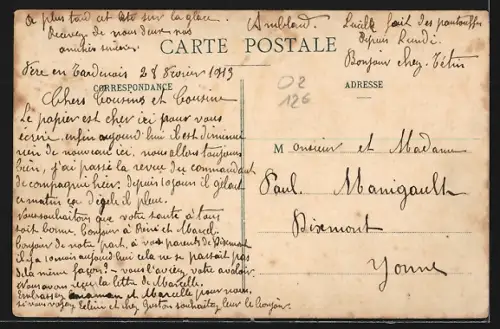 plus tard cet été sur la glace.
Recevez de nous deux nos
amitiés sincères.
Amblard.
Lucile fait des pantoufles
depuis lundi.
Bonjour chez Tétin
CARTE POSTALE
Fère en Tardenois 28 Février 1913
CORRESPONDANCE
ADRESSE
02
126
Chers Cousins et Cousine
Le papier est cher ici pour vous
écrire enfin aujourd'hui il est diminué
rien de nouveau ici, nous allons toujours
bien, j'ai passé la revue du commandant
de compagnie hier. depuis 10 jours il gelait
ce matin ça dégèle il pleut.
Nous souhaitons que votre santé à tous
soit bonne. Bonjour à René et Marcel.
bonjour de notre part, à vos parents de Dixmont
il y a 1 mois aujourd'hui cela ne se passait pas
de la même façon? - vous l'aviez votre
Nous avons reçu la lettre de Marcelle.
Embrassez maman et Marcelle pour nous.
si vous voyez et chez Gaston souhaitez leur le bonjour.
Monsieur et Madame
Paul Manigault
Dixmont
Yonne